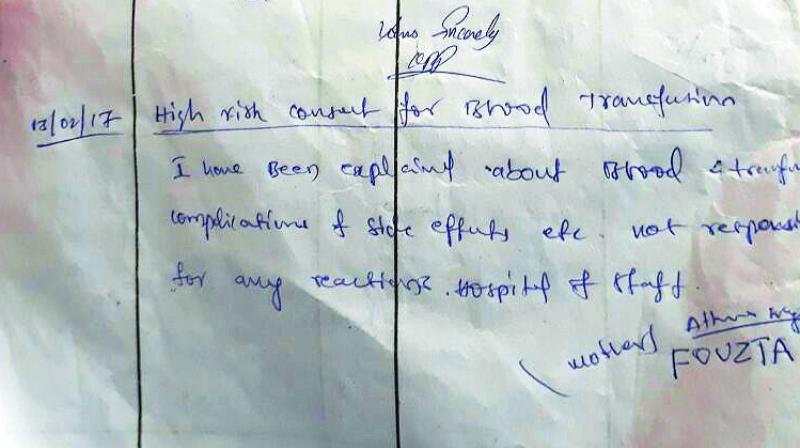 Yours Sincerely
13/02/17 High risk consent for Blood Transfusion
I have Been explained about Blood & transfu
complications & side effects etc. not responsi
for any reactions. Hospital & staff.
(mother)
FOUZIA